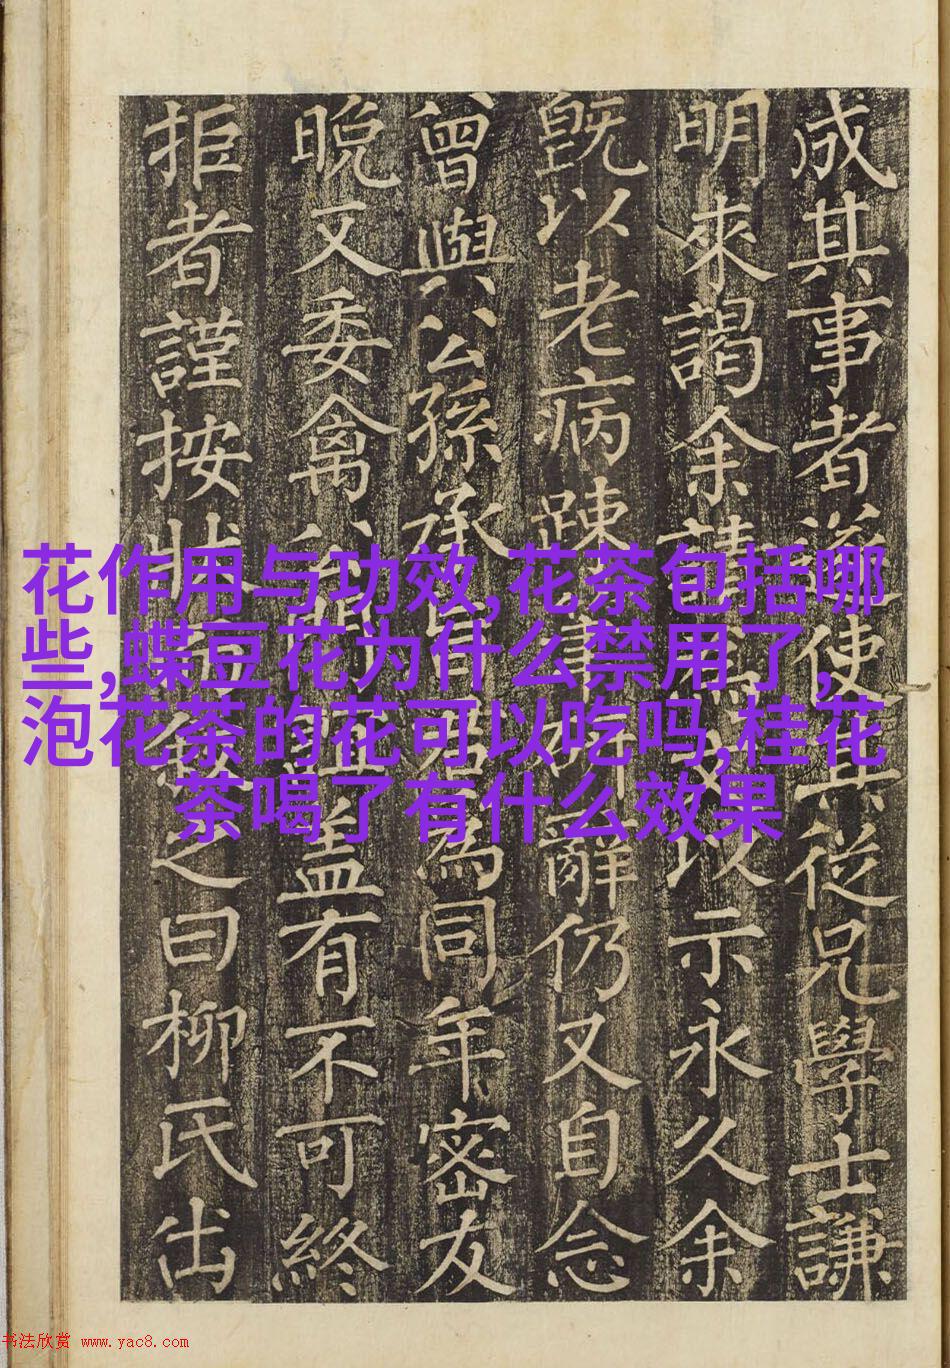 成其事者遂使其從兄學士謙
明來謁余請以示永久余
既以老病踈辭仍又自念
曾與公孫承旨君為同年密友
晩又委禽有不可終
拒者謹按狀之曰柳氏出
花作用与功效,花茶包括哪
些,蝶豆花为什么禁用了,
泡花茶的花可以吃吗,桂花
茶喝了有什么效果
书法欣赏 www.yac8.com